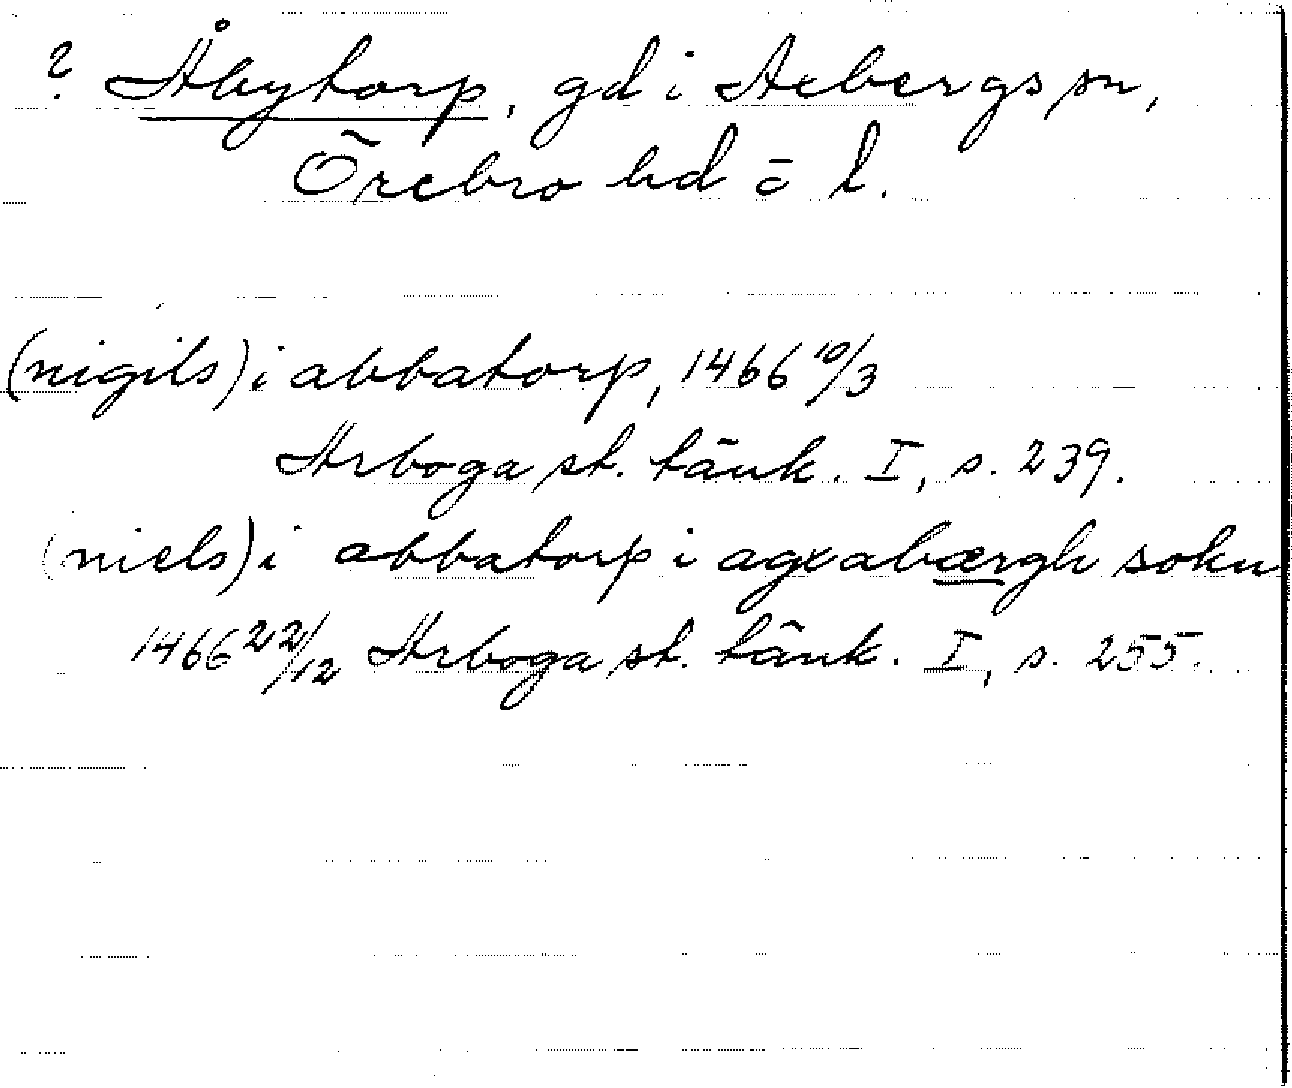 ? Åbytorp, gd i Axbergs sn,
Örebro hd o l.
(nigils) i abbatorp, 1466 10/3
Arboga st. tänk. I, s. 239.
(niels) i abbatorp i agxabærgh sokn
1466 22/12 Arboga st. tänk. I, s. 255.